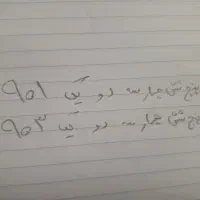 پنج شش چهار سه دو یک ۹۵۱
پنج شش چهار سه دو یک ۹۵۳